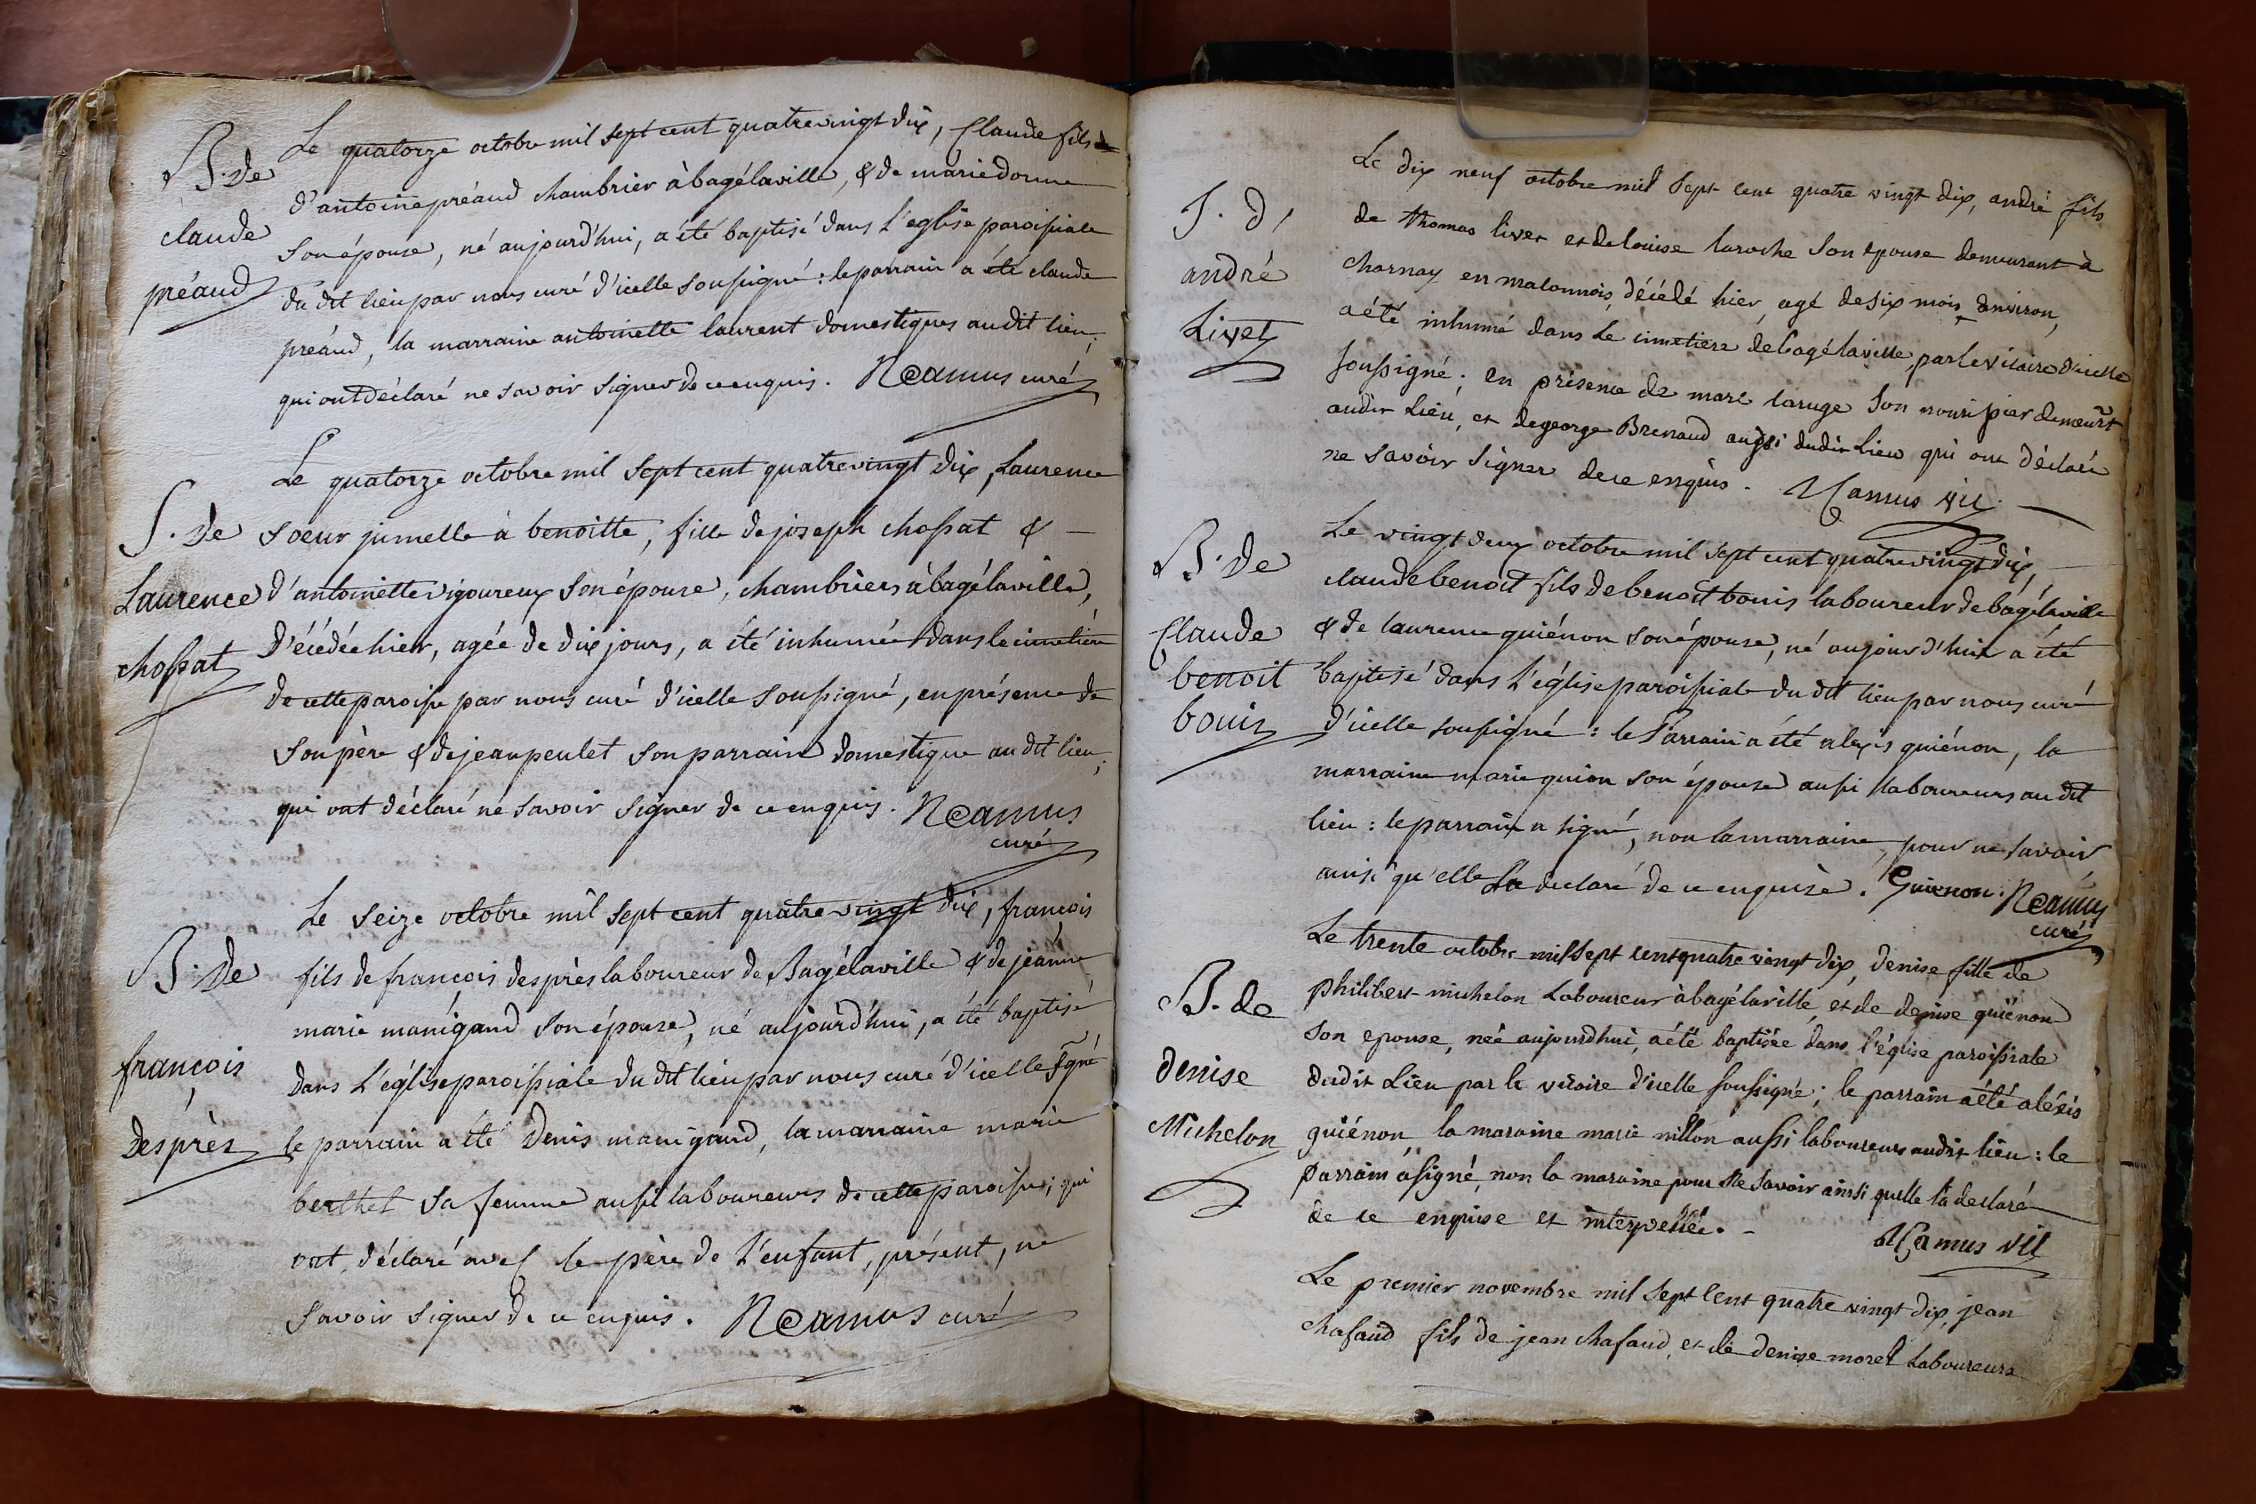 B. de
claude
préaud
Le quatorze octobre mil sept cent quatrevingt dix, Claude fils
d'antoine préaud chambrier à bagélaville, & de marie donne
son épouse, né aujourd'hui, a été baptisé dans l'eglise paroissiale
du dit lieu par nous curé d'icelle soussigné : le parrain a été claude
préaud, la marraine antoinette laurent domestiques au dit lieu,
qui ont déclaré ne savoir signer de ce enquis. N Camus curé
S. de
Laurence
chossat
Le quatorze octobre mil sept cent quatrevingt dix, Laurence
soeur jumelle à benoitte, fille de joseph chossat &
d'antoinette vigoureux son épouse, chambriers à bagélaville,
d'écédée hier, agée de dix jours, a été inhumée dans le cimetière
de cette paroisse par nous curé d'icelle soussigné, en présence de
son père & de jean peulet son parrain domestique au dit lieu,
qui ont déclaré ne savoir signer de ce enquis. N Camus
curé
B. de
françois
desprès
Le seize octobre mil sept cent quatre vingt dix, françois
fils de françois desprès laboureur de Bagélaville & de jeanne
marie manigand son épouse, né aujourd'hui, a été baptisé
dans l'église paroissiale du dit lieu par nous curé d'icelle sgné
le parrain a été Denis manigand, la marraine marie
berthet sa femme aussi laboureurs de cette paroisse, qui
ont déclaré avec le père de l'enfant, présent, ne
savoir signer de ce enquis. N Camus curé
S. d'
andré
Livet
Le dix neuf octobre mil sept cent quatre vingt dix, andré fils
de thomas livet et de louise laroche son epouse demeurant à
charnay en maconnois, décédé hier, agé de six mois environ,
a été inhumé dans le cimetiere de bagélaville, par le vicaire d'icelle
soussigné ; en présence de marc laruge son nourissier demeurt
audit Lieu, et de george Brenaud aussi dudit Lieu qui ont déclaré
ne savoir signer de ce enquis. N Camus vic
B. de
Claude
benoit
bouis
Le vingt deux octobre mil sept cent quatre vingt dix,
claude benoit fils de benoit bouis laboureur de bagélaville
& de laurence guiénon son épouse, né aujourd'hui a été
baptisé dans l'église paroissiale du dit lieu par nous curé
d'icelle soussigné : le Parrain a été alexis guiénon, la
marraine marie guion son épouse aussi laboureurs au dit
lieu : le parrain a signé, non la marraine, pour ne savoir
ainsi qu'elle l'a declaré de ce enquise. Guienon. N Camus
curé
B. de
denise
Michelon
Le trente octobre mil sept cent quatre vingt dix, denise fille de
philibert michelon Laboureur à bagélaville, et de denise guiénon
son epouse, née aujourdhui, a été baptisée dans l'église paroissiale
dudit Lieu par le vicaire d'icelle soussigné ; le parrain a été aléxis
guiénon la maraine marie nillon aussi laboureurs audit lieu : le
parrain a signé, non la maraine pour ne savoir ainsi quelle l'a declaré
de ce enquise et interpellée.
N Camus vic
Le premier novembre mil sept cent quatre vingt dix, jean
chafaud fils de jean chafaud, et de denise morel Laboureurs